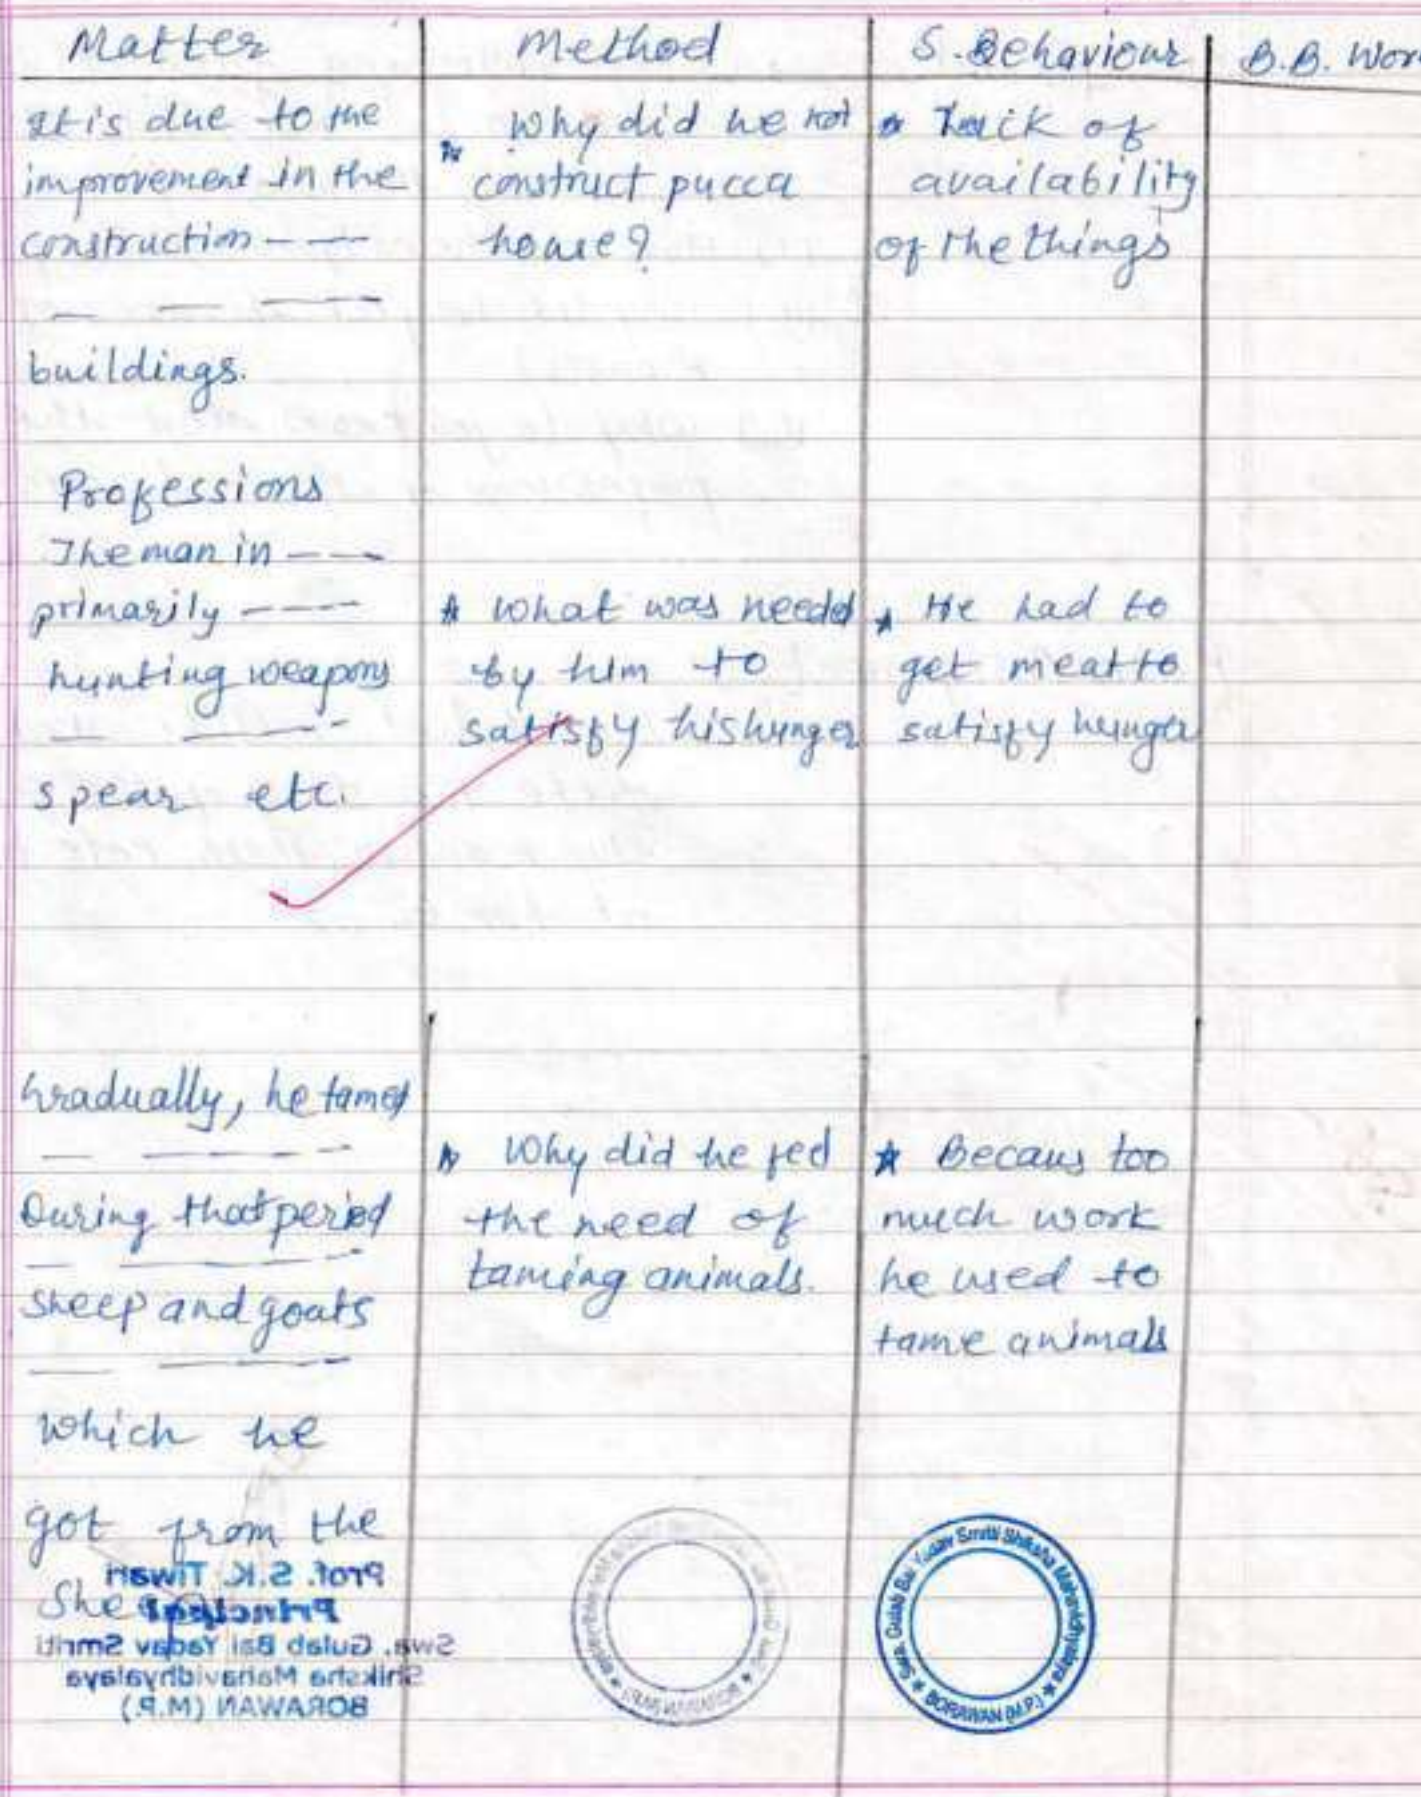 Matter
Method
S. Behaviour
B.B. Wor
It is due to the
improvement in the
construction - - -
buildings.
Why did he not
construct pucca
house?
Lack of
availability
of the things
Professions
The man in - - -
primarily - - - -
hunting weapons
spear etc.
What was needed
by him to
satisfy his hunger
He had to
get meat to
satisfy hunger
Gradually, he tamed
During that period
sheep and goats
which he
got from the
Why did he feel
the need of
taming animals.
Becaus too
much work
he used to
tame animals
Prof. S.K. Tiwari
Principal
Swa. Gulab Bai Yadav Smriti
Shiksha Mahavidhyalaya
BORAWAN (M.P.)
Swa. Gulab Bai Yadav Smriti Shiksha Mahavidhyalaya
BORAWAN (M.P.)